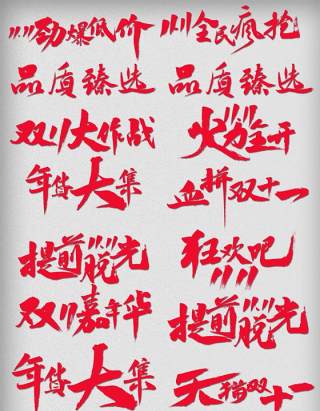 11.11劲爆低价
11.11全民疯抢
品质臻选
品质臻选
双11大作战
火力全开
年货大集
血拼双十一
提前11.11脱光
狂欢吧11.11
双11嘉年华
提前11.11脱光
年货大集
天猫双十一